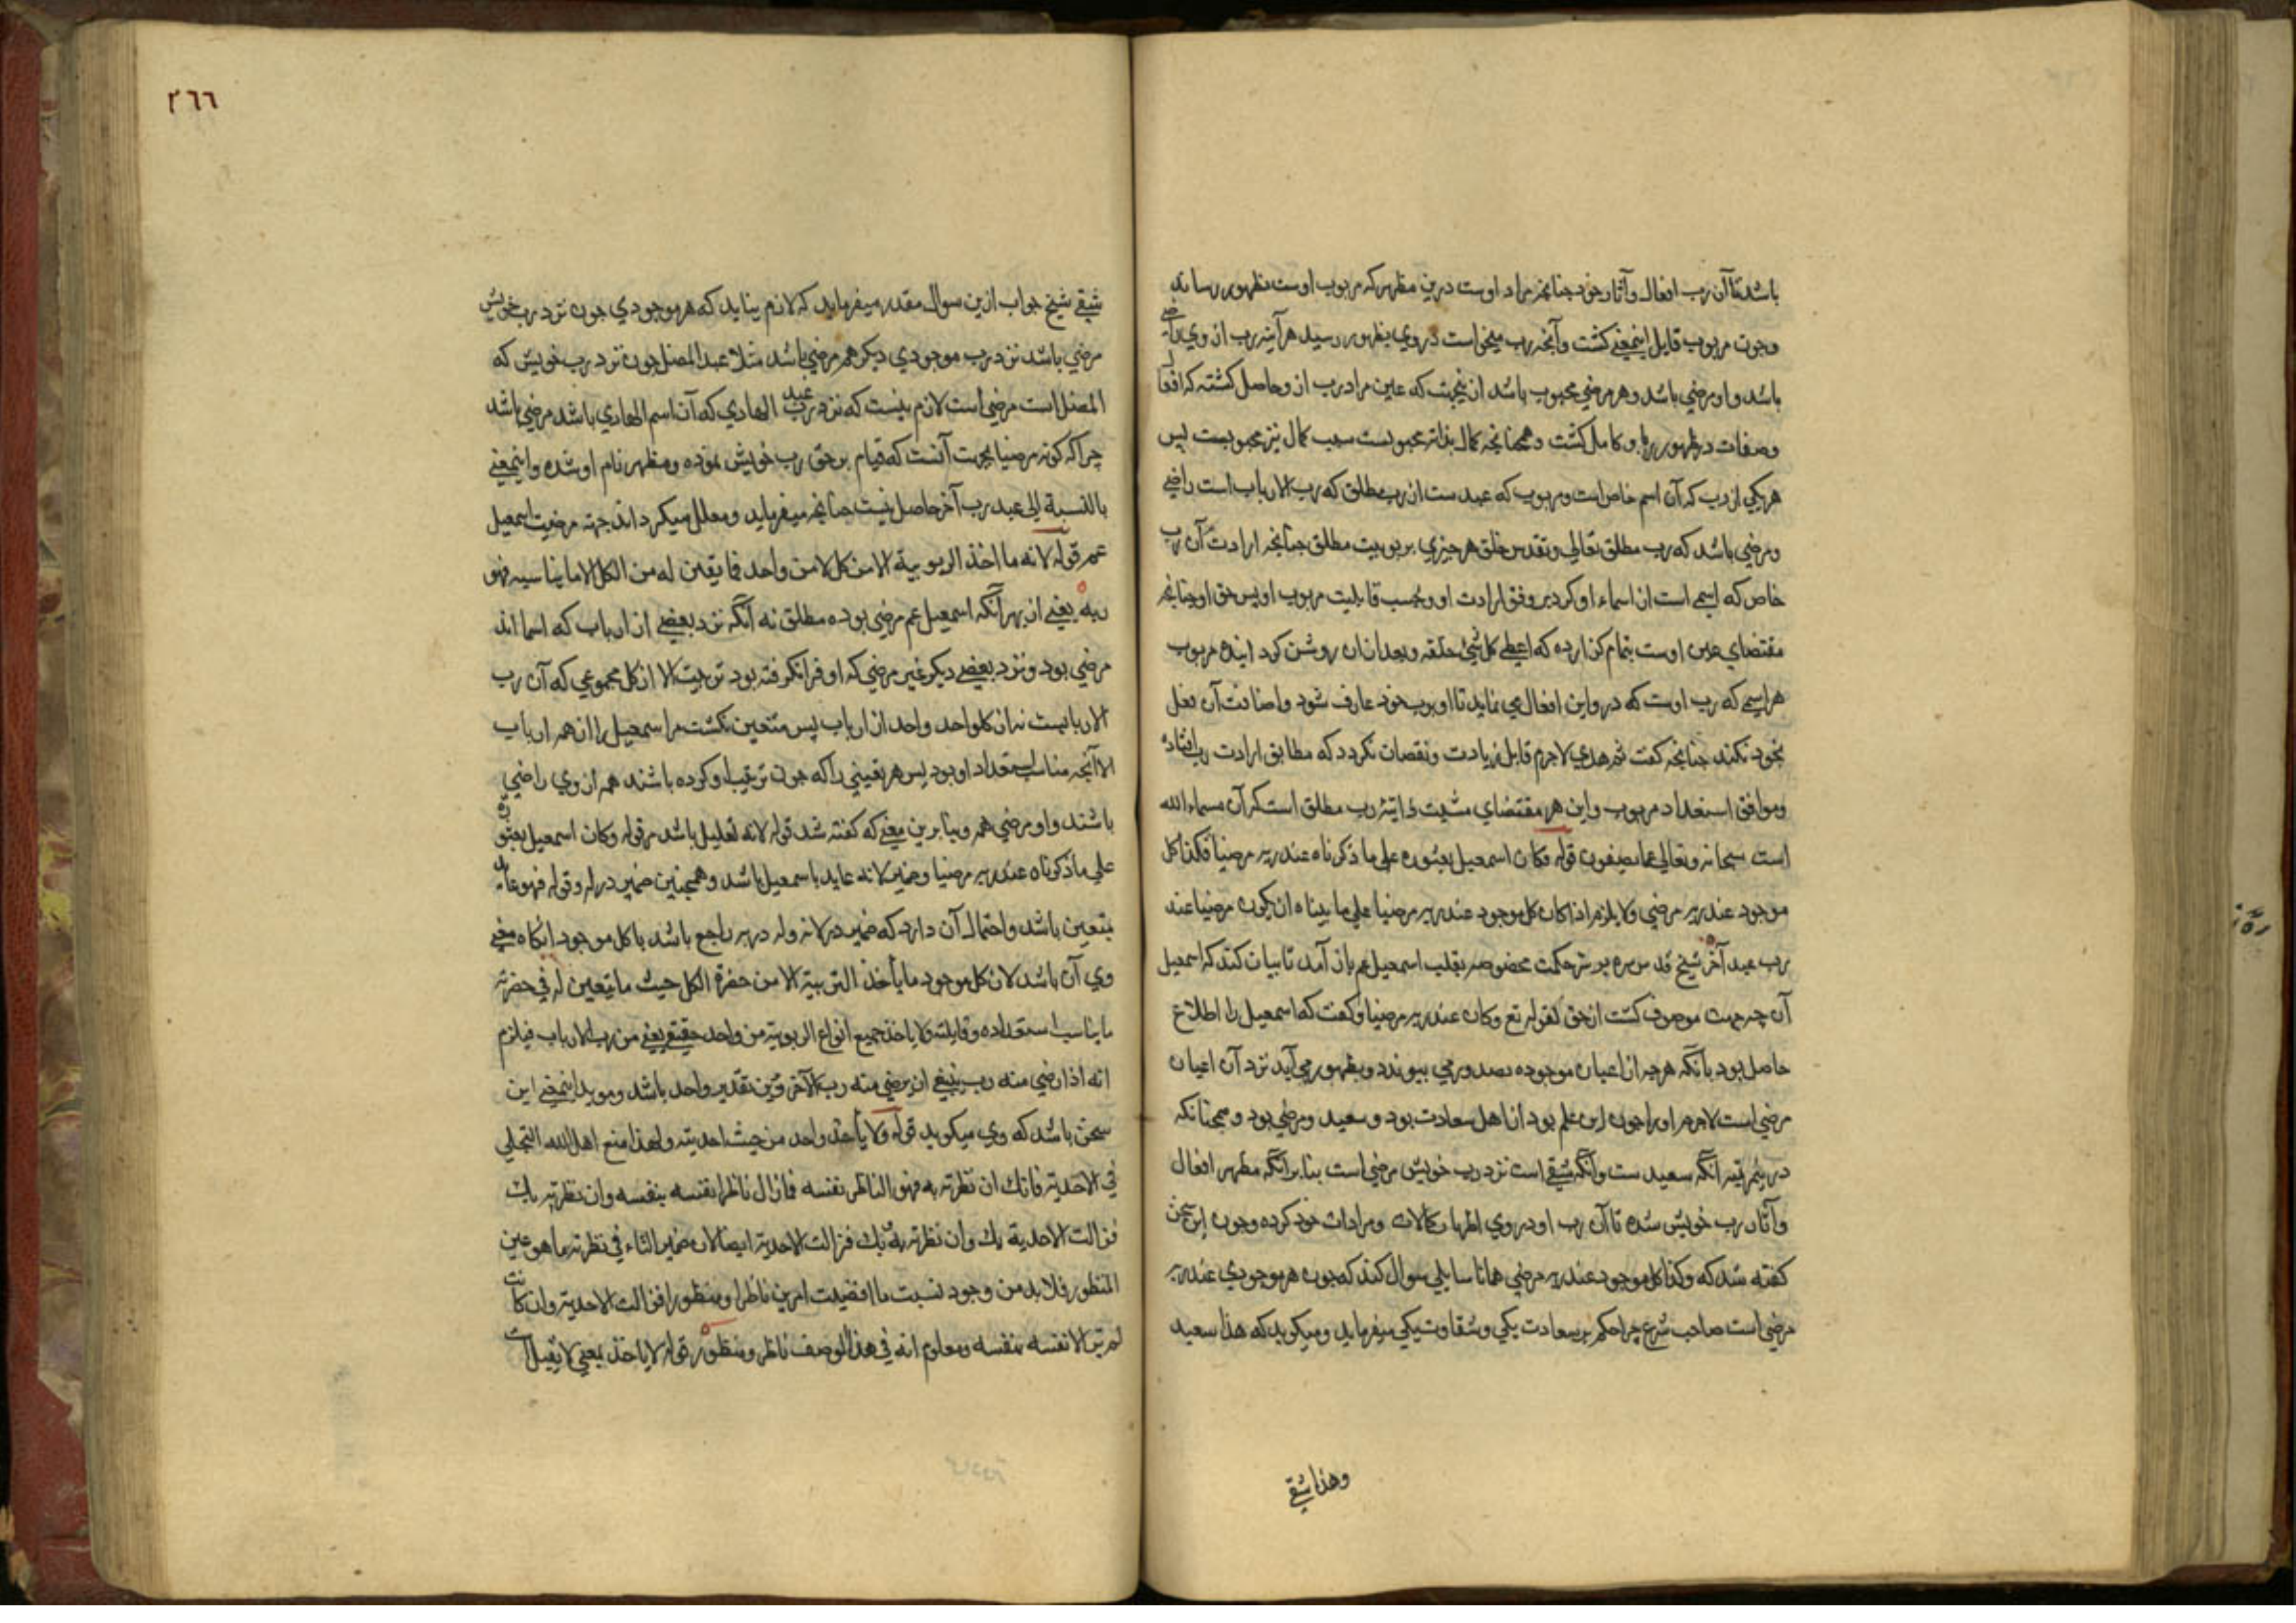 باشد تا آن رب افعال و آثار خود چنانچه مراد اوست درین مظهر که مربوب اوست بظهور رساند
وچون مربوب قابل اینمعنی کشت وآنچه رب میخواست در وی بظهور رسید هرآینه رب از وی راضی
باشد واو مرضی باشد وهر مرضی محبوب باشد ازینجهت که عین مراد رب ازو حاصل کشته که افعال
وصفات در ظهور باو کامل کشت وهمچنانچه کمال بذاته محبوبست سبب کمال نیز محبوبست پس
هر یکی از رب که آن اسم خاص است ومربوب که عبدست از رب مطلق که رب الارباب است راضی
ومرضی باشد که رب مطلق تعالی وتقدس خلق هر چیزی بربوبیت مطلق چنانچه ارادت آن رب
خاص که اسمی است از اسماء او کرد بر وفق ارادت او وبحسب قابلیت مربوب او پس حق او چنانچه
مقتضای عین اوست بتمام کزارده که اعطی کل شیء خلقه وبعد ازان روشن کرد
هر اسمی که رب اوست که درو این افعال می نماید تا او برب خود عارف شود واضافت آن فعل
بخود نکند چنانچه کفت ثم هدی لاجرم قابل زیادت ونقصان نکردد که مطابق ارادت رب افتاده
وموافق استعداد مربوب واین هر مقتضای مشیت ذاتیة رب مطلق است که آن مسماء الله
است سبحانه وتعالی عما یصفون قوله فکان اسمعیل بعثوره علی ما ذکرناه عند ربه مرضیا فکذا کل
موجود عند ربه مرضی ولا یلزم اذا کان کل موجود عند ربه مرضیا علی ما بیناه ان یکون مرضیا عند
رب عبد آخر شیخ قدس سره بر سر حکمت مخصوصه بقلب اسمعیل عم باز آمد تا بیان کند که اسمعیل
آن چه جهت موصوف کشت از حق لقوله تع وکان عند ربه مرضیا وکفت که اسمعیل را اطلاع
حاصل بود بآنکه هر چه از اعیان موجوده بصدور می پیوندد وبظهور می آید نزد آن اعیان
مرضی است لاجرم اورا چون این علم بود از اهل سعادت بود وسعید ومرضی بود وهمچنانکه
درینمرتبه آنکه سعید ست وآنکه شقی است نزد رب خویش مرضی است بنا برآنکه مظهر افعال
وآثار رب خویش شده تا آن رب او در وی اظهار کمالات ومرادات خود کرده وچون این سخن
کفته شد که وکذا کل موجود عند ربه مرضی همانا سایلی سوال کند که چون هر موجودی عند ربه
مرضی است صاحب شرع چرا حکم بر سعادت یکی وشقاوت یکی میفرماید ومیکوید که هذا سعید
وهذا شقی
٣٦٦
شقی شیخ جواب ازین سوال مقدر میفرماید که لازم نیاید که هر موجودی چون نزد رب خویش
مرضی باشد نزد رب موجودی دیکر هم مرضی باشد مثلا عبد المضل چون نزد رب خویش که
المضل است مرضی است لازم نیست که نزد رب عبد الهادی که آن اسم الهادی باشد مرضی باشد
چرا که کونه مرضیا بجهت آنست که قیام بر حق رب خویش نموده ومظهر نام او شده واینمعنی
بالنسبة الی عبد رب آخر حاصل نیست چنانچه میفرماید ومعلل میکرداند جهة مرضیت اسمعیل
عم قوله لانه ما اخذ الربوبیة الا من کل لا من واحد فما یتعین له من الکل الا ما یناسبه فهو
ربه یعنی از بهر آنکه اسمعیل عم مرضی بوده مطلق نه آنکه نزد بعضی از ارباب که اسما اند
مرضی بود ونزد بعضی دیکر غیر مرضی که او فرا نکرفته بود تربیت الا از کل مجموعی که آن رب
الاربابست نه از کلواحد واحد از ارباب پس متعین نکشت مر اسمعیل را از همه ارباب
الا آنچه مناسب استعداد او بود پس هر تعینی را که چون تربیت او کرده باشند همه از وی راضی
باشند واو مرضی همه وبنا برین معنی که کفته شد قوله لانه تعلیل باشد مر قوله وکان اسمعیل بعثوره
علی ما ذکرناه عند ربه مرضیا وضمیر لانه عاید باسمعیل باشد وهمچنین ضمیر در له وقوله فهو عاید
بتعین باشد واحتمال آن دارد که ضمیر در لانه وله در به راجع باشد با کل موجود آنکاه معنی
وی آن باشد لان کل موجود ما یأخذ التربیة الا من حضرة الکل حیث ما یتعین له فی حضرته
ما یناسب استعداده وقابلیته ولا یاخذ جمیع انواع الربوبیة من واحد حقیقی یعنی من رب الارباب فیلزم
انه اذا رضی منه رب ینبغی ان یرضی منه رب الآخر وبرین تقدیر واحد باشد وموید اینمعنی این
سخن باشد که وی میکوید قوله ولا یأخذ واحد من حیث احدیته ولهذا منع اهل الله التجلی
فی الاحدیة فانک ان نظرته به فهو الناظر نفسه فما زال ناظرا نفسه بنفسه وان نظرته بک
فزالت الاحدیة بک وان نظرته به وبک فزالت الاحدیة ایضا لان ضمیر التاء فی نظرته ما هو عین
المنظور فلا بد من وجود نسبت ما اقتضت امرین ناظرا ومنظورا فزالت الاحدیة وان کانت
لم یر الا نفسه بنفسه ومعلوم انه فی هذا الوصف ناظر ومنظور قوله لا یاخذ بمعنی لا یقبل است